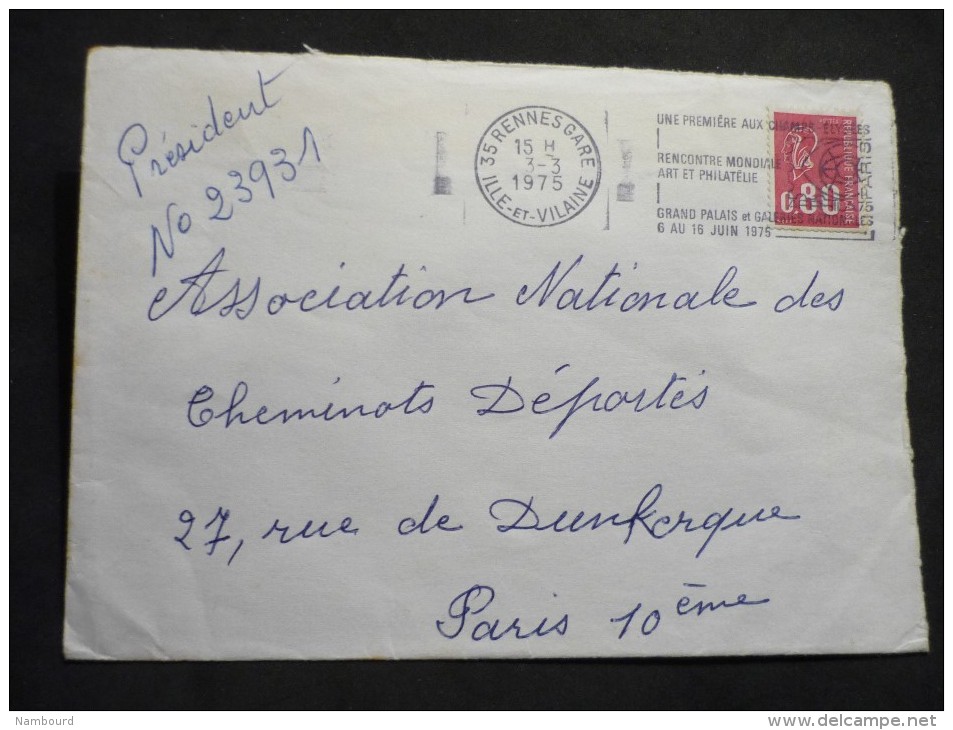 Président
No 23931
35 RENNES GARE
15 H
3-3
1975
ILLE-ET-VILAINE
UNE PREMIÈRE AUX CHAMPS ÉLYSÉES
RENCONTRE MONDIALE
ART ET PHILATÉLIE
GRAND PALAIS et GALERIES NATIONALES
6 AU 16 JUIN 1975
REPUBLIQUE FRANÇAISE
0.80
PARIS
75
Association Nationale des
Cheminots Déportés
27, rue de Dunkerque
Paris 10ème
Nambourd
www.delcampe.net